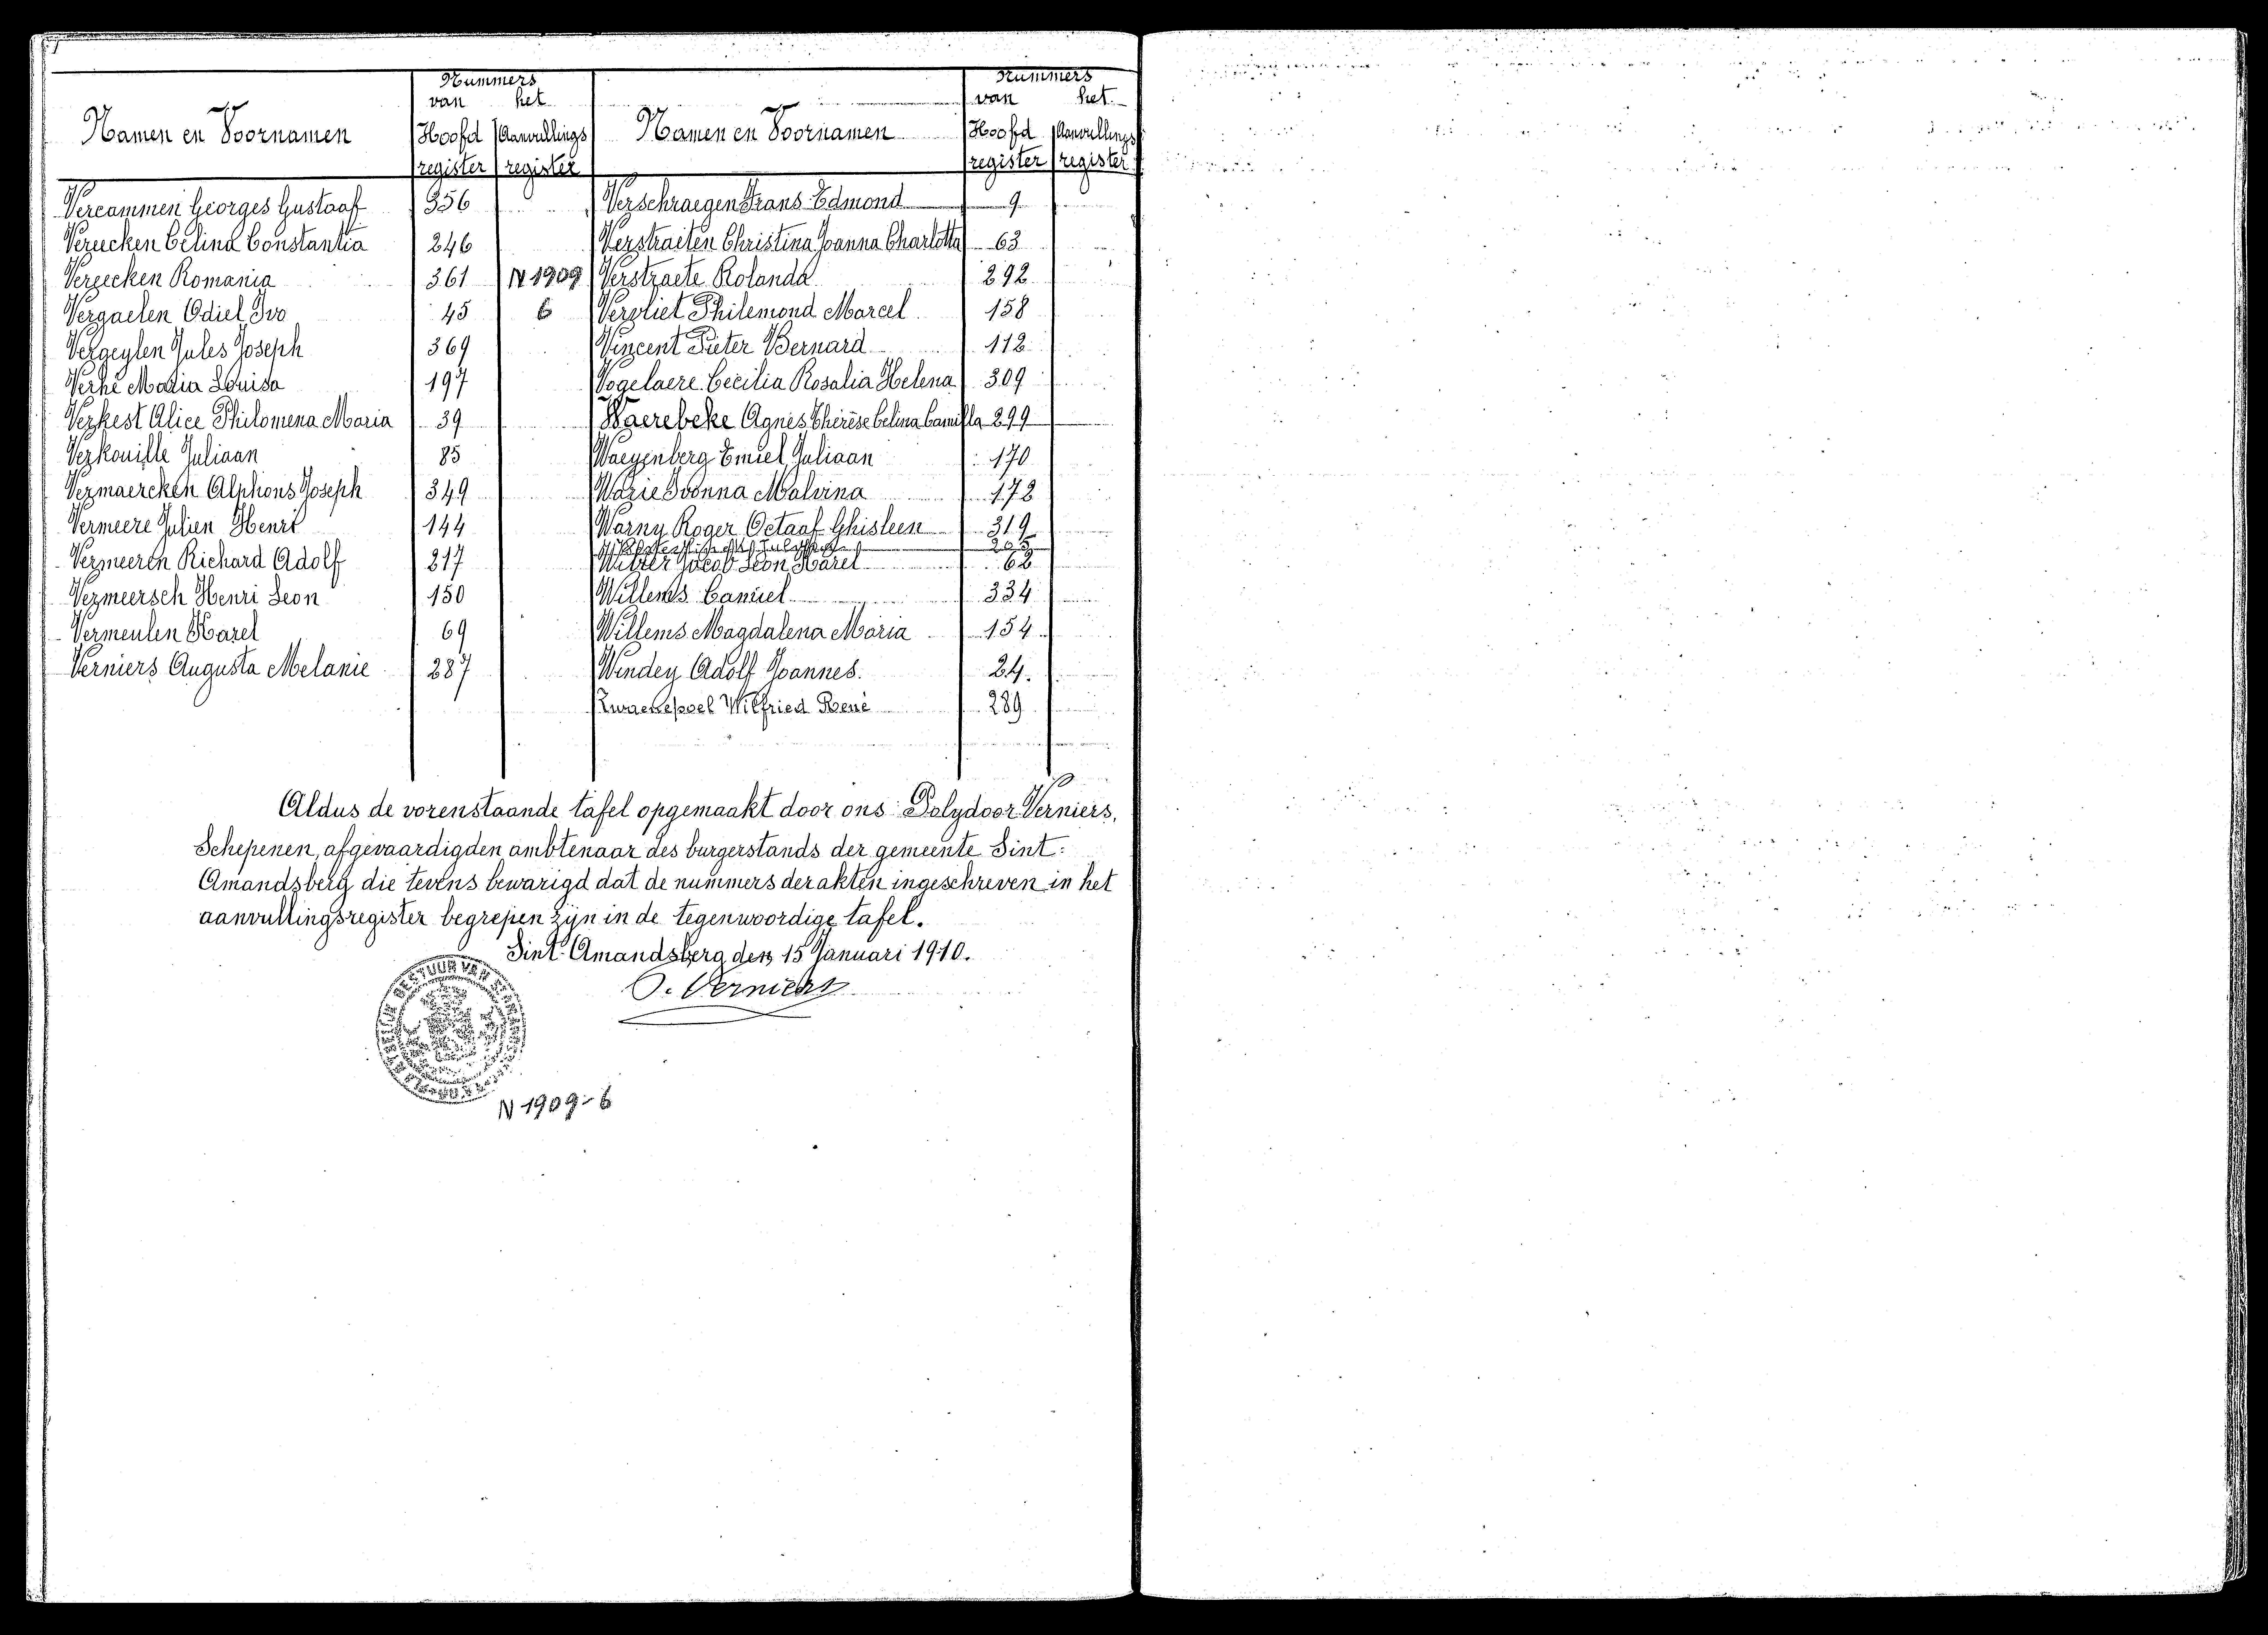 Nummers
van het
Namen en Voornamen Hoofd Aanvullings
register register
Vercammen Georges Gustaaf 356
Vereecken Celina Constantia 246
Vereecken Romania 361 N 1909
Vergaelen Odiel Ivo 45 6
Vergeylen Jules Joseph 369
Verhé Maria Louisa 197
Verkest Alice Philomena Maria 39
Verkouille Juliaan 85
Vermaercken Alphons Joseph 349
Vermeere Julien Henri 144
Vermeeren Richard Adolf 217
Vermeersch Henri Leon 150
Vermeulen Karel 69
Verniers Augusta Melanie 287
Nummers
van het
Namen en Voornamen Hoofd Aanvullings
register register
Verschraegen Frans Edmond 9
Verstraeten Christina Joanna Charlotta 63
Verstraete Rolanda 292
Vervliet Philemond Marcel 158
Vincent Pieter Bernard 112
Vogelaere Cecilia Rosalia Helena 309
Waerebeke Agnes Thérèse Celina Camilla 299
Waeyenberg Emiel Juliaan 170
Warie Ivonna Malvina 172
Warny Roger Octaaf Ghisleen 319
205
Wilzer Jacob Leon Karel 62
Willems Camiel 334
Willems Magdalena Maria 154
Windey Adolf Joannes. 24.
Zwaenepoel Wilfried René 289
Aldus de vorenstaande tafel opgemaakt door ons Polydoor Verniers,
Schepenen, afgevaardigden ambtenaar des burgerstands der gemeente Sint-
Amandsberg die tevens bewarigd dat de nummers der akten ingeschreven in het
aanvullingsregister begrepen zijn in de tegenwoordige tafel.
Sint-Amandsberg den 15 Januari 1910.
P. Verniers
BESTUUR VAN
N 1909-6